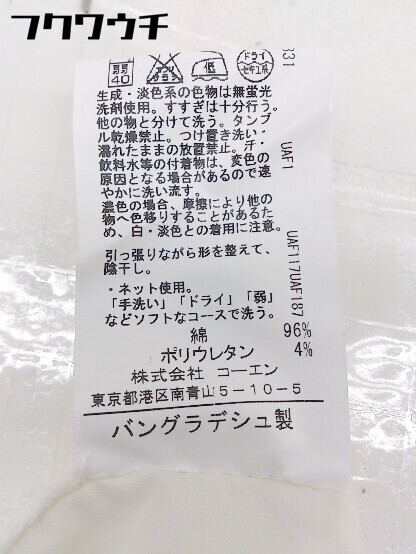 フクワウチ
弱 40
エンソサラシ
低
ドライ セキユ系
331
生成・淡色系の色物は無蛍光
洗剤使用。すすぎは十分行う。
他の物と分けて洗う。タンブ
ル乾燥禁止。つけ置き洗い・
濡れたままの放置禁止。汗・
飲料水等の付着物は、変色の
原因となる場合があるので速
やかに洗い流す。
濃色の場合、摩擦により他の
物へ色移りすることがあるた
め、白・淡色との着用に注意。
UAF1
UAF117UAF187
引っ張りながら形を整えて、
陰干し。
・ネット使用。
「手洗い」「ドライ」「弱」
などソフトなコースで洗う。
綿 96%
ポリウレタン 4%
株式会社 コーエン
東京都港区南青山5-10-5
バングラデシュ製